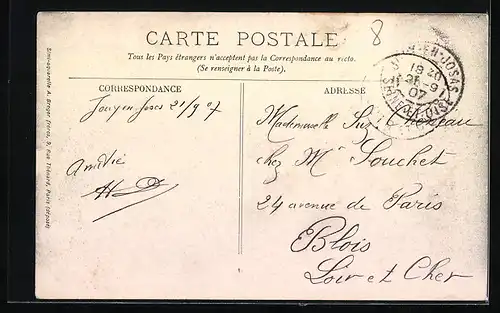 8
CARTE POSTALE
Tous les Pays étrangers n'acceptent pas la Correspondance au recto.
(Se renseigner à la Poste).
CORRESPONDANCE
Jouy en Josas 21/9 07
Amitié
ADRESSE
Mademoiselle Suz
chez Mr Souchet
24 avenue de Paris
Blois
Loir et Cher
EN-JOSAS
SEINE-ET-OISE
07
Simi-aquarelle A. Breger frères, 9, Rue Thénard, Paris (déposé)